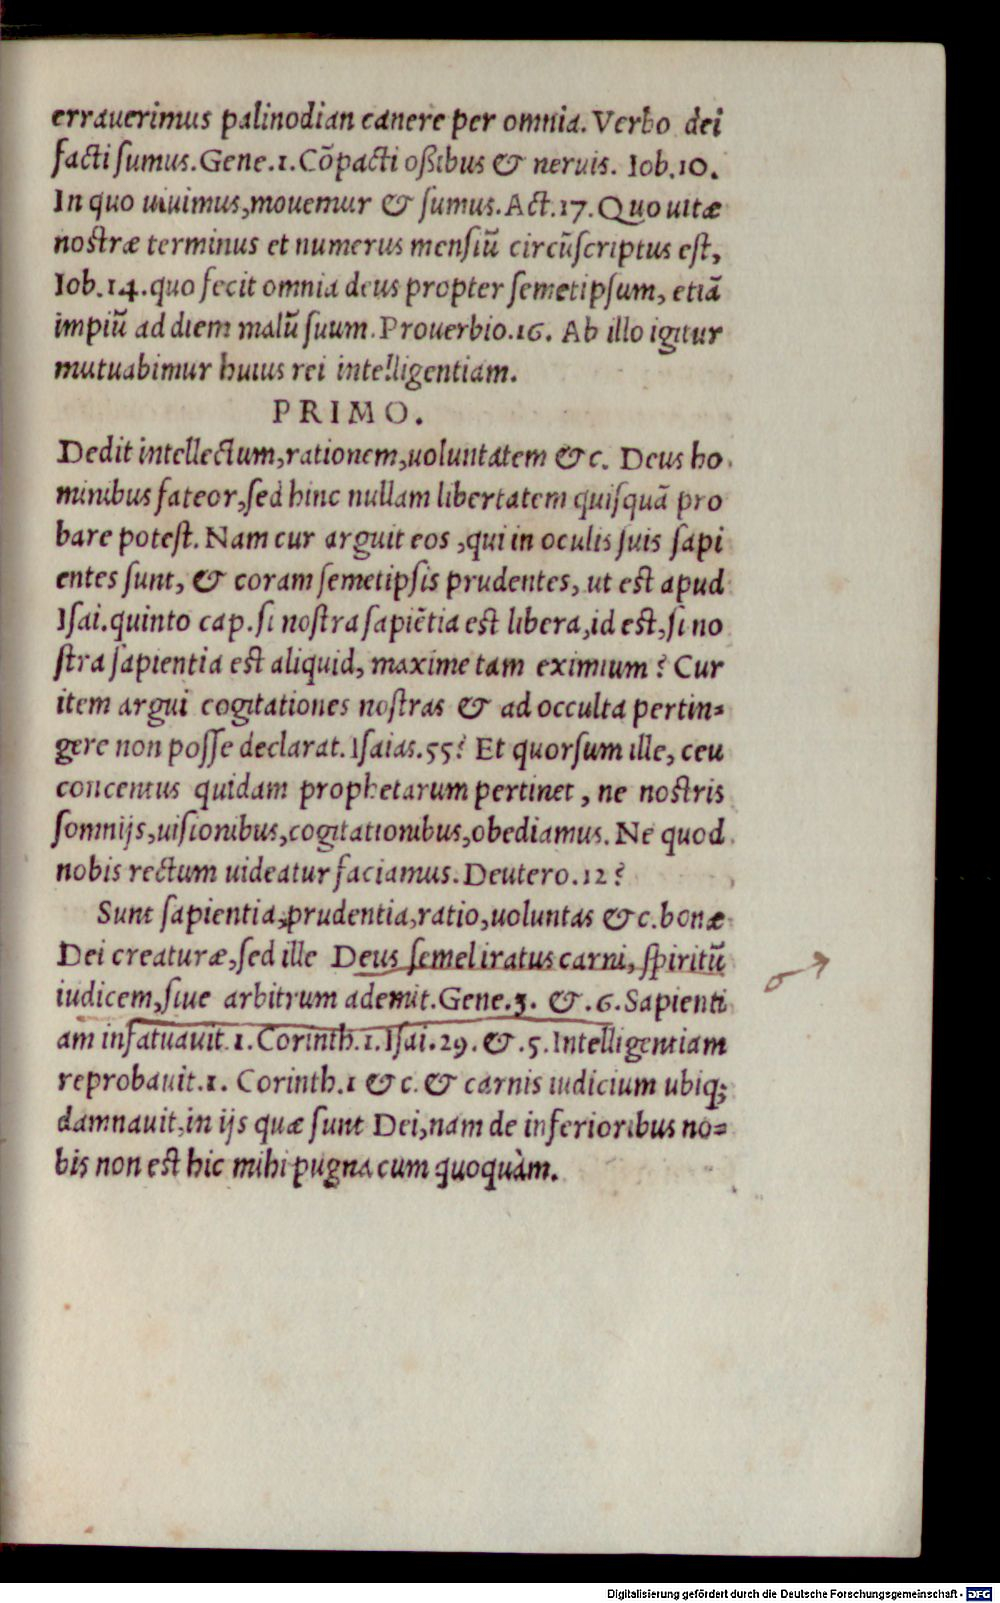 errauerimus palinodian canere per omnia. Verbo dei
facti sumus. Gene. 1. Cõpacti oßibus & neruis. Iob. 10.
In quo uiuimus, mouemur & sumus. Act. 17. Quo uitæ
nostræ terminus et numerus mensiũ circũscriptus est,
Iob. 14. quo fecit omnia deus propter semetipsum, etiã
impiũ ad diem malũ suum. Prouerbio. 16. Ab illo igitur
mutuabimur huius rei intelligentiam.
PRIMO.
Dedit intellectum, rationem, uoluntatem &c. Deus ho
minibus fateor, sed hinc nullam libertatem quisquã pro
bare potest. Nam cur arguit eos, qui in oculis suis sapi
entes sunt, & coram semetipsis prudentes, ut est apud
Isai. quinto cap. si nostra sapiẽtia est libera, id est, si no
stra sapientia est aliquid, maxime tam eximium? Cur
item argui cogitationes nostras & ad occulta pertin=
gere non posse declarat. Isaias. 55? Et quorsum ille, ceu
concentus quidam prophetarum pertinet, ne nostris
somnijs, uisionibus, cogitationibus, obediamus. Ne quod
nobis rectum uideatur faciamus. Deutero. 12?
Sunt sapientia, prudentia, ratio, uoluntas &c. bonæ
Dei creaturæ, sed ille Deus semel iratus carni, spiritũ
iudicem, siue arbitrum ademit. Gene. 3. &. 6. Sapienti
am infatuauit. 1. Corinth. 1. Isai. 29. &. 5. Intelligentiam
reprobauit. 1. Corinth. 1 &c. & carnis iudicium ubiq;
damnauit, in ijs quæ sunt Dei, nam de inferioribus no=
bis non est hic mihi pugna cum quoquàm.
Digitalisierung gefördert durch die Deutsche Forschungsgemeinschaft - DFG